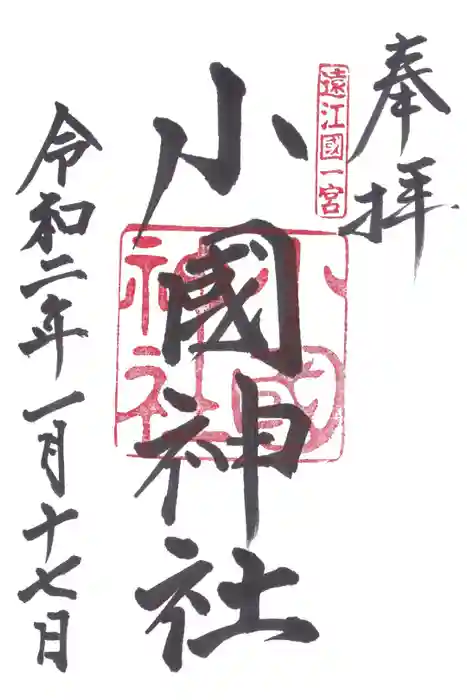 奉拝
遠江國一宮
小國神社
小國神社
令和二年一月十七日